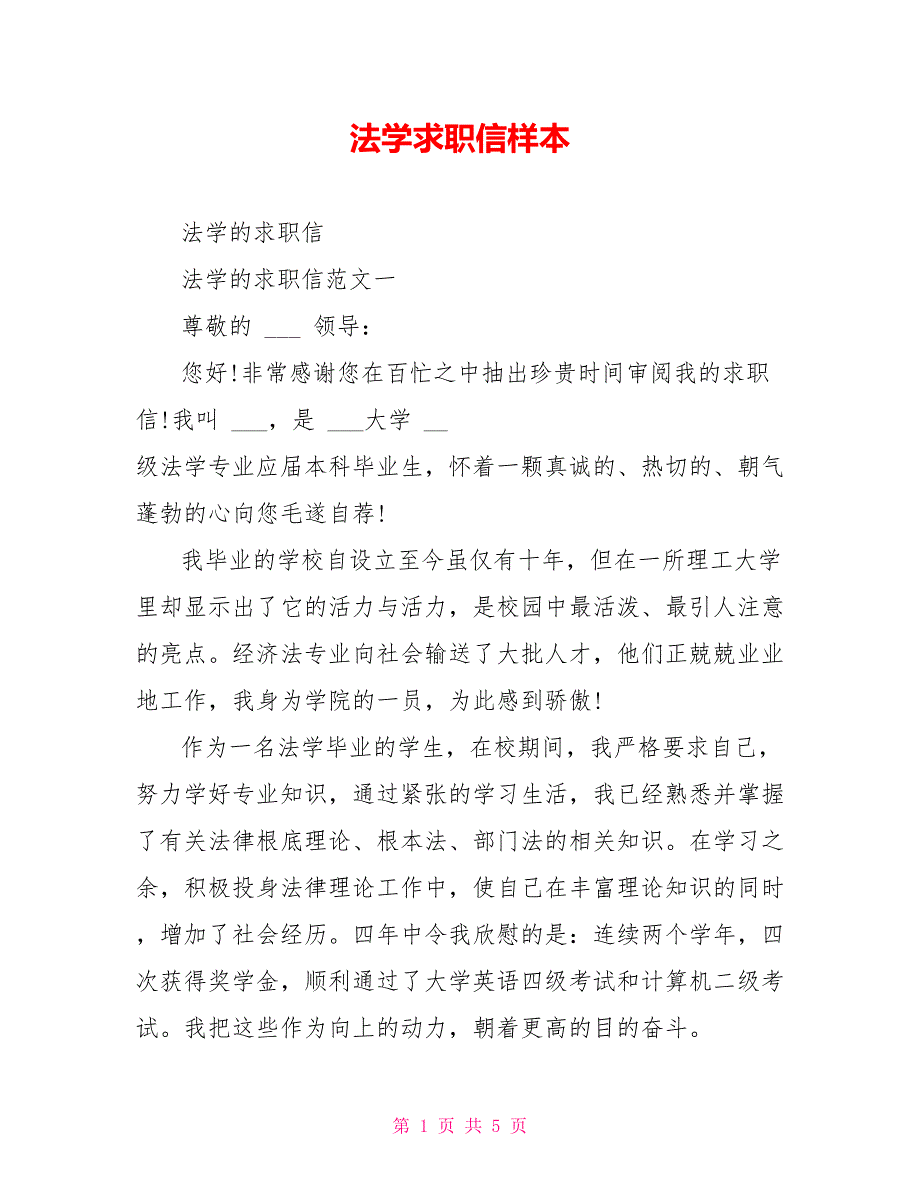 法学求职信样本
法学的求职信
法学的求职信范文一
尊敬的 ___ 领导：
您好!非常感谢您在百忙之中抽出珍贵时间审阅我的求职
信!我叫 ___，是 ___大学 __
级法学专业应届本科毕业生，怀着一颗真诚的、热切的、朝气
蓬勃的心向您毛遂自荐!
我毕业的学校自设立至今虽仅有十年，但在一所理工大学
里却显示出了它的活力与活力，是校园中最活泼、最引人注意
的亮点。经济法专业向社会输送了大批人才，他们正兢兢业业
地工作，我身为学院的一员，为此感到骄傲!
作为一名法学毕业的学生，在校期间，我严格要求自己，
努力学好专业知识，通过紧张的学习生活，我已经熟悉并掌握
了有关法律根底理论、根本法、部门法的相关知识。在学习之
余，积极投身法律理论工作中，使自己在丰富理论知识的同时
，增加了社会经历。四年中令我欣慰的是：连续两个学年，四
次获得奖学金，顺利通过了大学英语四级考试和计算机二级考
试。我把这些作为向上的动力，朝着更高的目的奋斗。
第 1 页 共 5 页